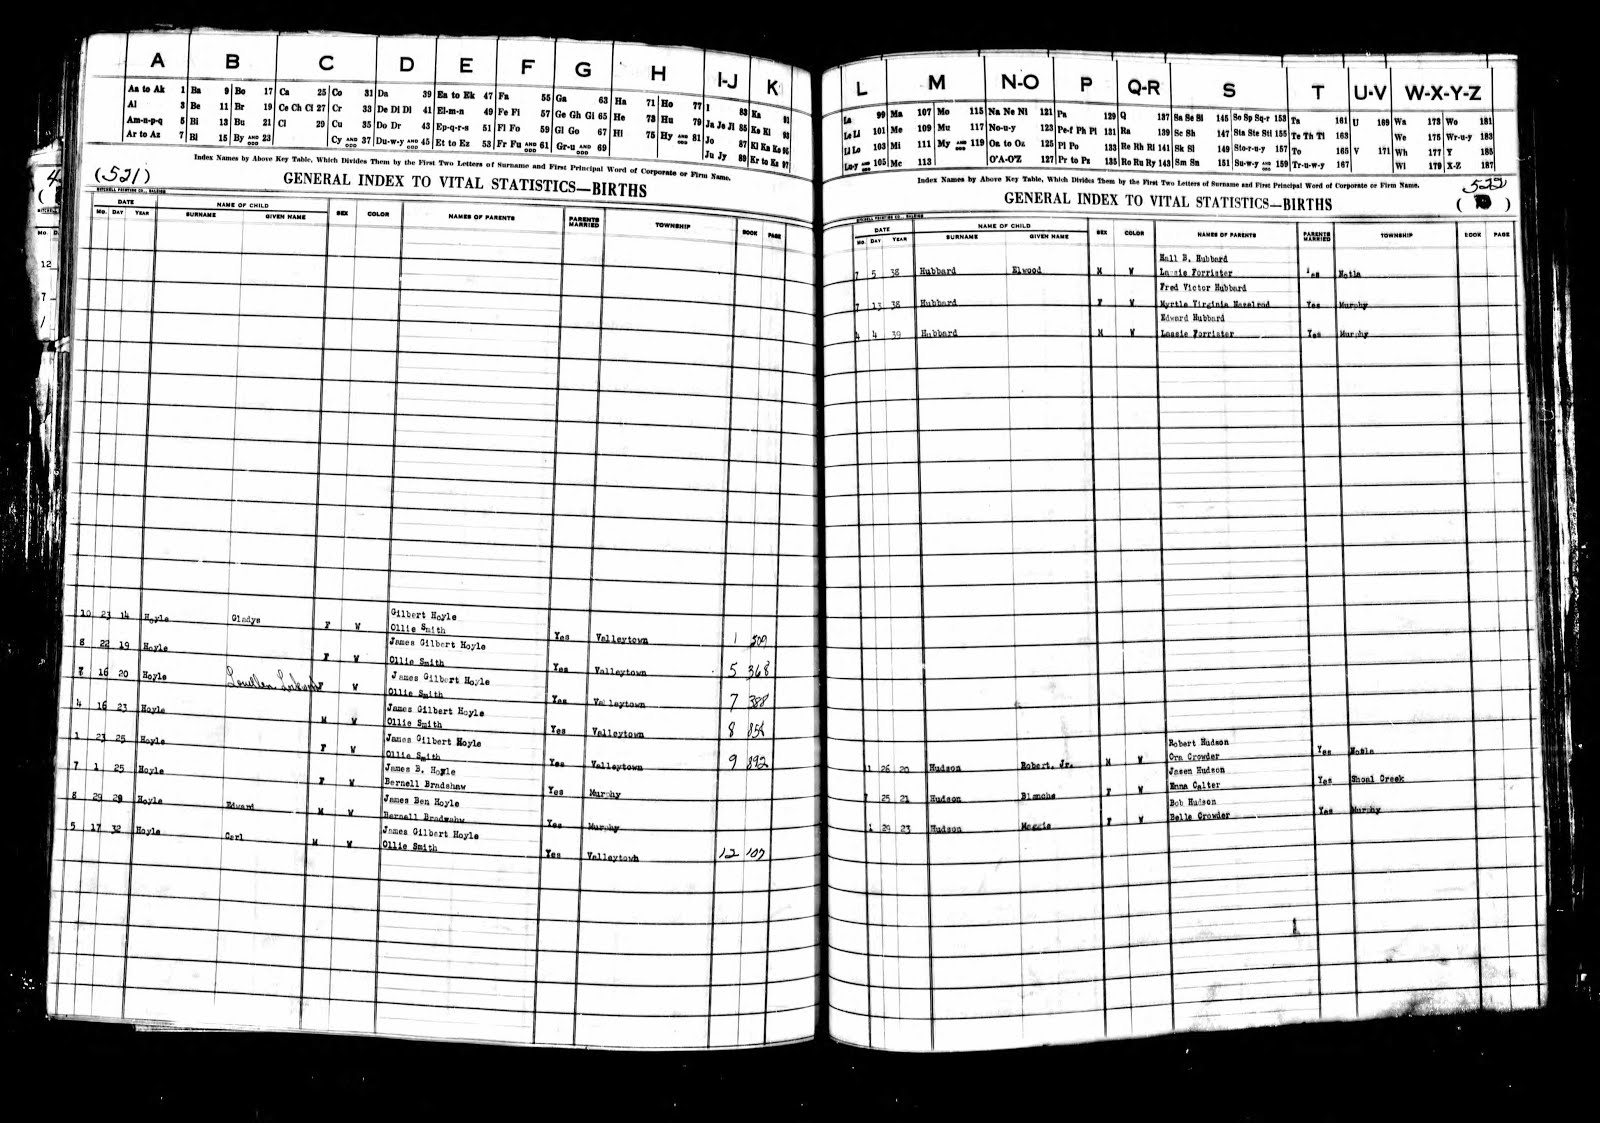 A B C D E F G H I-J K
Aa to Ak 1 Ba 9 Bo 17 Ca 25 Co 31 Da 39 Ea to Ek 47 Fa 55 Ga 63 Ha 71 Ho 77 I 83 Ka 91
Al 3 Be 11 Br 19 Ce Ch Ci 27 Cr 33 De Di Dl 41 El-m-n 49 Fe Fi 57 Ge Gh Gi 65 He 73 Hu 79 Ja Je Ji 85 Ke Ki 93
Am-n-p-q 5 Bi 13 Bu 21 Cl 29 Cu 35 Do Dr 43 Ep-q-r-s 51 Fl Fo 59 Gl Go 67 Hi 75 Hy AND ODD 81 Jo 87 Kl Kn Ko 95
Ar to Az 7 Bl 15 By AND ODD 23 Cy AND ODD 37 Du-w-y AND ODD 45 Et to Ez 53 Fr Fu AND ODD 61 Gr-u AND ODD 69 Ju Jy 89 Kr to Kz 97
Index Names by Above Key Table, Which Divides Them by the First Two Letters of Surname and First Principal Word of Corporate or Firm Name.
(521) GENERAL INDEX TO VITAL STATISTICS—BIRTHS
MITCHELL PRINTING CO., RALEIGH
DATE NAME OF CHILD SEX COLOR NAMES OF PARENTS PARENTS MARRIED TOWNSHIP BOOK PAGE
MO. DAY YEAR SURNAME GIVEN NAME
10 23 14 Hoyle Gladys F W Gilbert Hoyle
Ollie Smith Yes Valleytown 1 209
8 22 19 Hoyle F W James Gilbert Hoyle
Ollie Smith Yes Valleytown 5 368
7 16 20 Hoyle Louellen F W James Gilbert Hoyle
Ollie Smith Yes Valleytown 7 388
4 16 23 Hoyle M W James Gilbert Hoyle
Ollie Smith Yes Valleytown 8
1 23 25 Hoyle F W James Gilbert Hoyle
Ollie Smith Yes Valleytown 9 892
7 1 25 Hoyle F W James B. Hoyle
Bernell Bradshaw Yes Murphy
8 29 29 Hoyle Edward M W James Ben Hoyle
Bernell Bradwahw Yes Murphy
5 17 32 Hoyle Carl M W James Gilbert Hoyle
Ollie Smith Yes Valleytown 12 107
L M N-O P Q-R S T U-V W-X-Y-Z
La 99 Ma 107 Mo 115 Na Ne Ni 121 Pa 129 Q 137 Sa Se Si 145 So Sp Sq-r 153 Ta 161 U 169 Wa 173 Wo 181
Le Li 101 Me 109 Mu 117 No-u-y 123 Pe-f Ph Pi 131 Ra 139 Sc Sh 147 Sta Ste Sti 155 Te Th Ti 163 We 175 Wr-u-y 183
Ll Lo 103 Mi 111 My AND ODD 119 Oa to Oz 125 Pl Po 133 Re Rh Ri 141 Sk Sl 149 Sto-r-u-y 157 To 165 V 171 Wh 177 Y 185
Lu-y AND ODD 105 Mc 113 O'A-O'Z 127 Pr to Pz 135 Ro Ru Ry 143 Sm Sn 151 Su-w-y AND ODD 159 Tr-u-w-y 167 Wi 179 X-Z 187
Index Names by Above Key Table, Which Divides Them by the First Two Letters of Surname and First Principal Word of Corporate or Firm Name.
GENERAL INDEX TO VITAL STATISTICS—BIRTHS 522
MITCHELL PRINTING CO., RALEIGH
DATE NAME OF CHILD SEX COLOR NAMES OF PARENTS PARENTS MARRIED TOWNSHIP BOOK PAGE
MO. DAY YEAR SURNAME GIVEN NAME
Hall B. Hubbard
7 5 38 Hubbard Elwood M W Lassie Forrister Yes Notla
Fred Victor Hubbard
7 13 38 Hubbard F W Myrtle Virginia Hazelrod Yes Murphy
Edward Hubbard
4 4 39 Hubbard M W Lassie Forrister Yes Murphy
Robert Hudson
11 26 20 Hudson Robert, Jr. M W Ora Crowder Yes Notla
Jasen Hudson
7 25 21 Hudson Blanche F W Enna Calter Yes Shoal Creek
Bob Hudson
1 29 23 Hudson Maggie F W Belle Crowder Yes Murphy